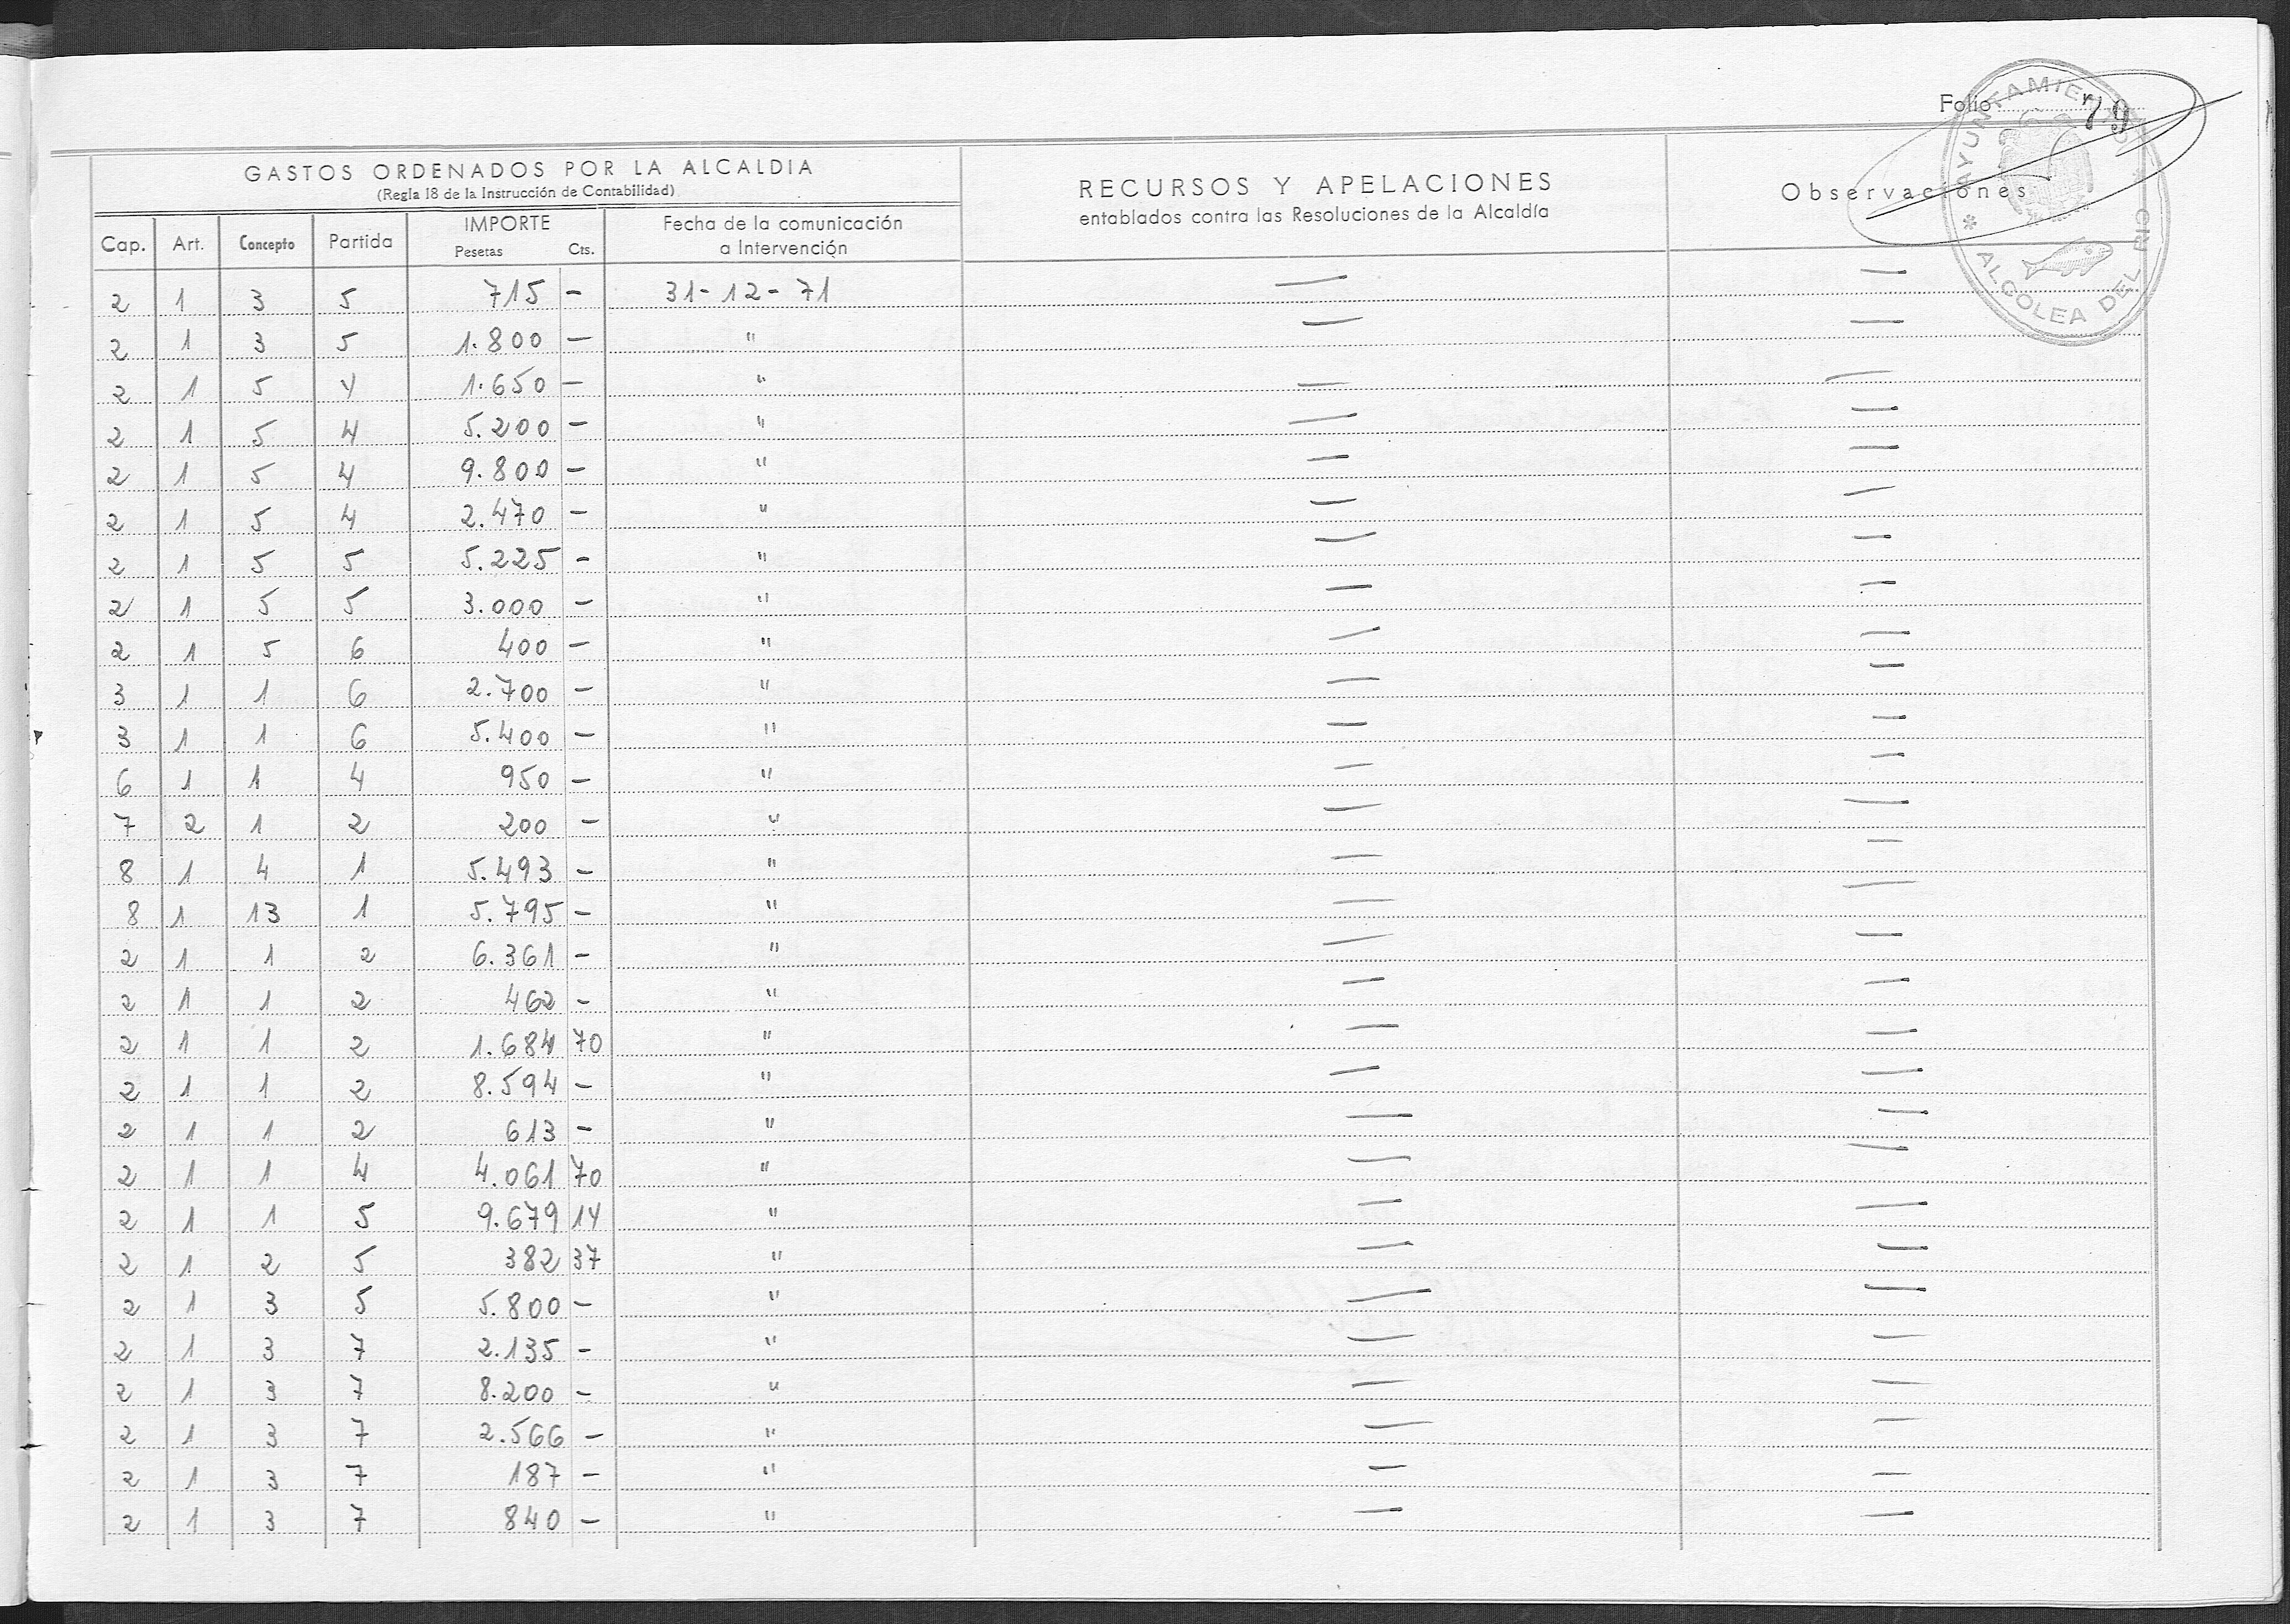 Folio 79
AYUNTAMIENTO * ALCOLEA DEL RIO *
GASTOS ORDENADOS POR LA ALCALDIA
(Regla 18 de la Instrucción de Contabilidad)
RECURSOS Y APELACIONES
entablados contra las Resoluciones de la Alcaldía
Observaciones
Cap. Art. Concepto Partida IMPORTE Pesetas Cts. Fecha de la comunicación a Intervención
2 1 3 5 715 - 31-12-71 — —
2 1 3 5 1.800 - " — —
2 1 5 4 1.650 - " — —
2 1 5 4 5.200 - " — —
2 1 5 4 9.800 - " — —
2 1 5 4 2.470 - " — —
2 1 5 5 5.225 - " — —
2 1 5 5 3.000 - " — —
2 1 5 6 400 - " — —
3 1 1 6 2.700 - " — —
3 1 1 6 5.400 - " — —
6 1 1 4 950 - " — —
7 2 1 2 200 - " — —
8 1 4 1 5.493 - " — —
8 1 13 1 5.795 - " — —
2 1 1 2 6.361 - " — —
2 1 1 2 462 - " — —
2 1 1 2 1.684 70 " — —
2 1 1 2 8.594 - " — —
2 1 1 2 613 - " — —
2 1 1 4 4.061 70 " — —
2 1 1 5 9.679 14 " — —
2 1 2 5 382 37 " — —
2 1 3 5 5.800 - " — —
2 1 3 7 2.135 - " — —
2 1 3 7 8.200 - " — —
2 1 3 7 2.566 - " — —
2 1 3 7 187 - " — —
2 1 3 7 840 - " — —